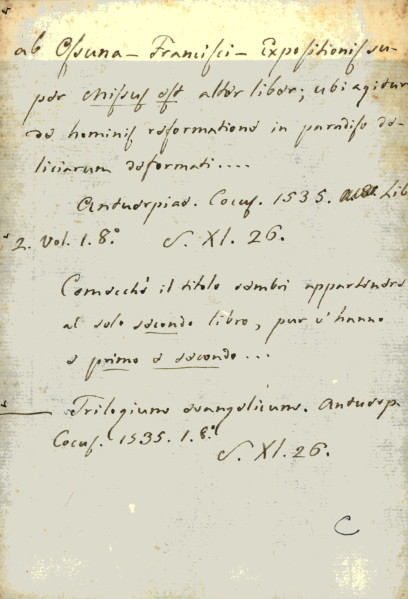 ab Ossuna - Francisci - Expositionis su-
per Missus est alter liber; ubi agitur
de hominis reformatione in paradiso de-
liciarum deformati....
Antuerpiae. Cocus. 1535. Lib
2. Vol. 1. 8.º S. XI. 26.
Comecchè il titolo sembri appartenere
al solo secondo libro, pur v'hanno
e primo e secondo...
— Trilogium evangelicum. Antuerp.
Cocus. 1535. 1. 8.º
S. XI. 26.
C